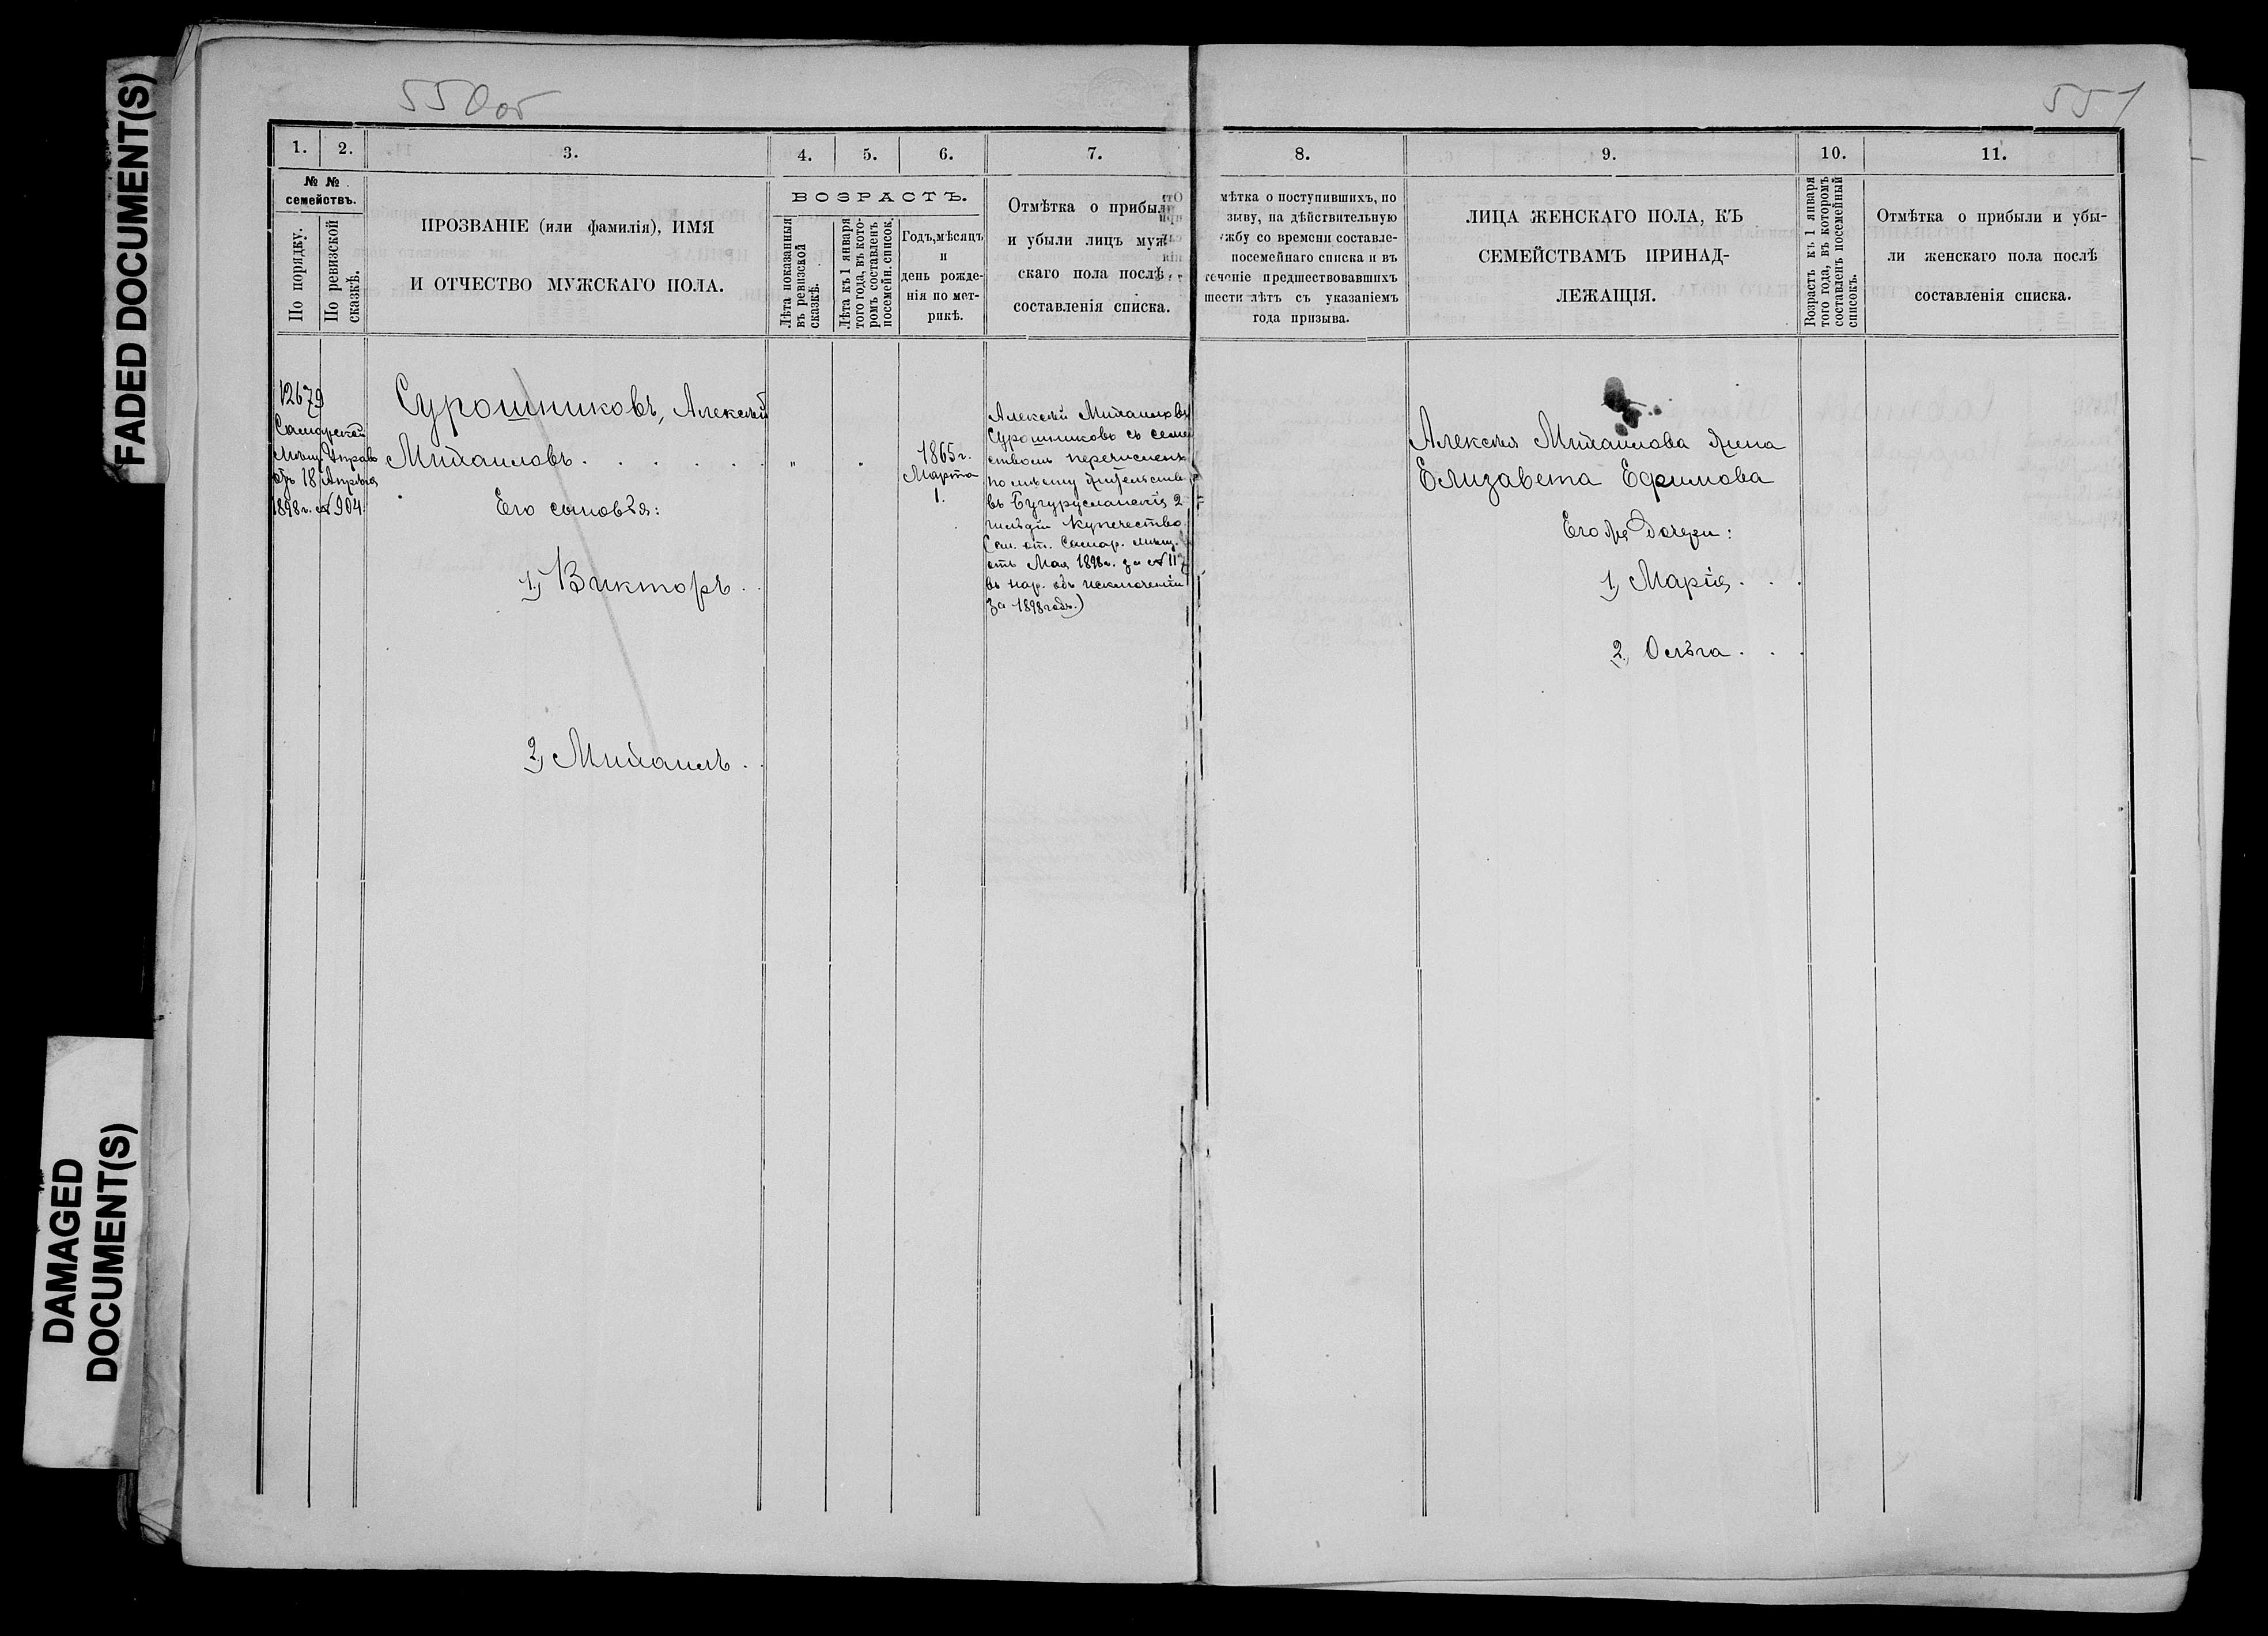 FADED DOCUMENT(S)
DAMAGED
DOCUMENT(S)
550об
551
1. 2. 3. 4. 5. 6. 7. 8. 9. 10. 11.
№ №
семействъ.
По порядку.
По ревизской
сказкѣ.
ПРОЗВАНІЕ (или фамилія), ИМЯ
И ОТЧЕСТВО МУЖСКАГО ПОЛА.
ВОЗРАСТЪ.
Лѣта показанныя
въ ревизской
сказкѣ.
Лѣта къ 1 января
того года, въ кото-
ромъ составленъ
посемейн. список.
Годъ, мѣсяцъ
и
день рожде-
нія по мет-
рикѣ.
Отмѣтка о прибыли
и убыли лицъ муж-
скаго пола послѣ
составленія списка.
мѣтка о поступившихъ, по
зыву, на дѣйствительную
жбу со времени составле-
посемейнаго списка и въ
теченіе предшествовавшихъ
шести лѣтъ съ указаніемъ
года призыва.
ЛИЦА ЖЕНСКАГО ПОЛА, КЪ
СЕМЕЙСТВАМЪ ПРИНАД-
ЛЕЖАЩІЯ.
Возрастъ къ 1 января
того года, въ которомъ
составленъ посемейный
списокъ.
Отмѣтка о прибыли и убы-
ли женскаго пола послѣ
составленія списка.
12679
Самарской
Мѣщ. Управ
отъ 18 Апрѣля
1898 г. № 904.
Сурошниковъ, Алексѣй
Михаиловъ. . . . . .
Его сыновья:
1) Викторъ. .
2) Михаилъ. .
1865 г.
Марта
1.
Алексѣй Михаиловъ
Сурошниковъ съ семей
ствомъ перечисленъ
по мѣсту жительства
въ Бугурусланскія 2
гильдіи купечество.
(см. от. Самар. мѣщ.
отъ Мая 1898 г. за № 117
въ нар. объ исключеніи
за 1898 годъ.)
Алексѣя Михаилова жена
Елизавета Ефимова
Его же дочери:
1) Марія. . .
2) Ольга. . .